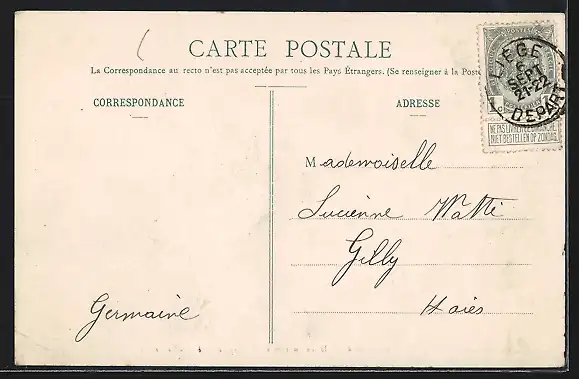 CARTE POSTALE
La Correspondance au recto n'est pas acceptée par tous les Pays Étrangers. (Se renseigner à la Poste
CORRESPONDANCE
ADRESSE
LIEGE
SEPT
21-22
DEPART
NE PAS LIVRER LE DIMANCHE
NIET BESTELLEN OP ZONDAG
Mademoiselle
Lucienne
Gilly
Haies
Germaine